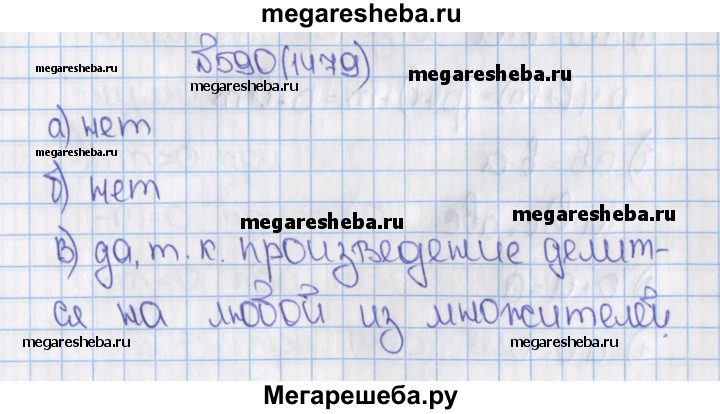 megaresheba.ru
№590(1479)
megaresheba.ru
megaresheba.ru
megaresheba.ru
а) нет
megaresheba.ru
б) нет
megaresheba.ru
megaresheba.ru
в) да, т. к. произведение делит-
ся на любой из множителей.
megaresheba.ru
megaresheba.ru
Мегарешеба.ру